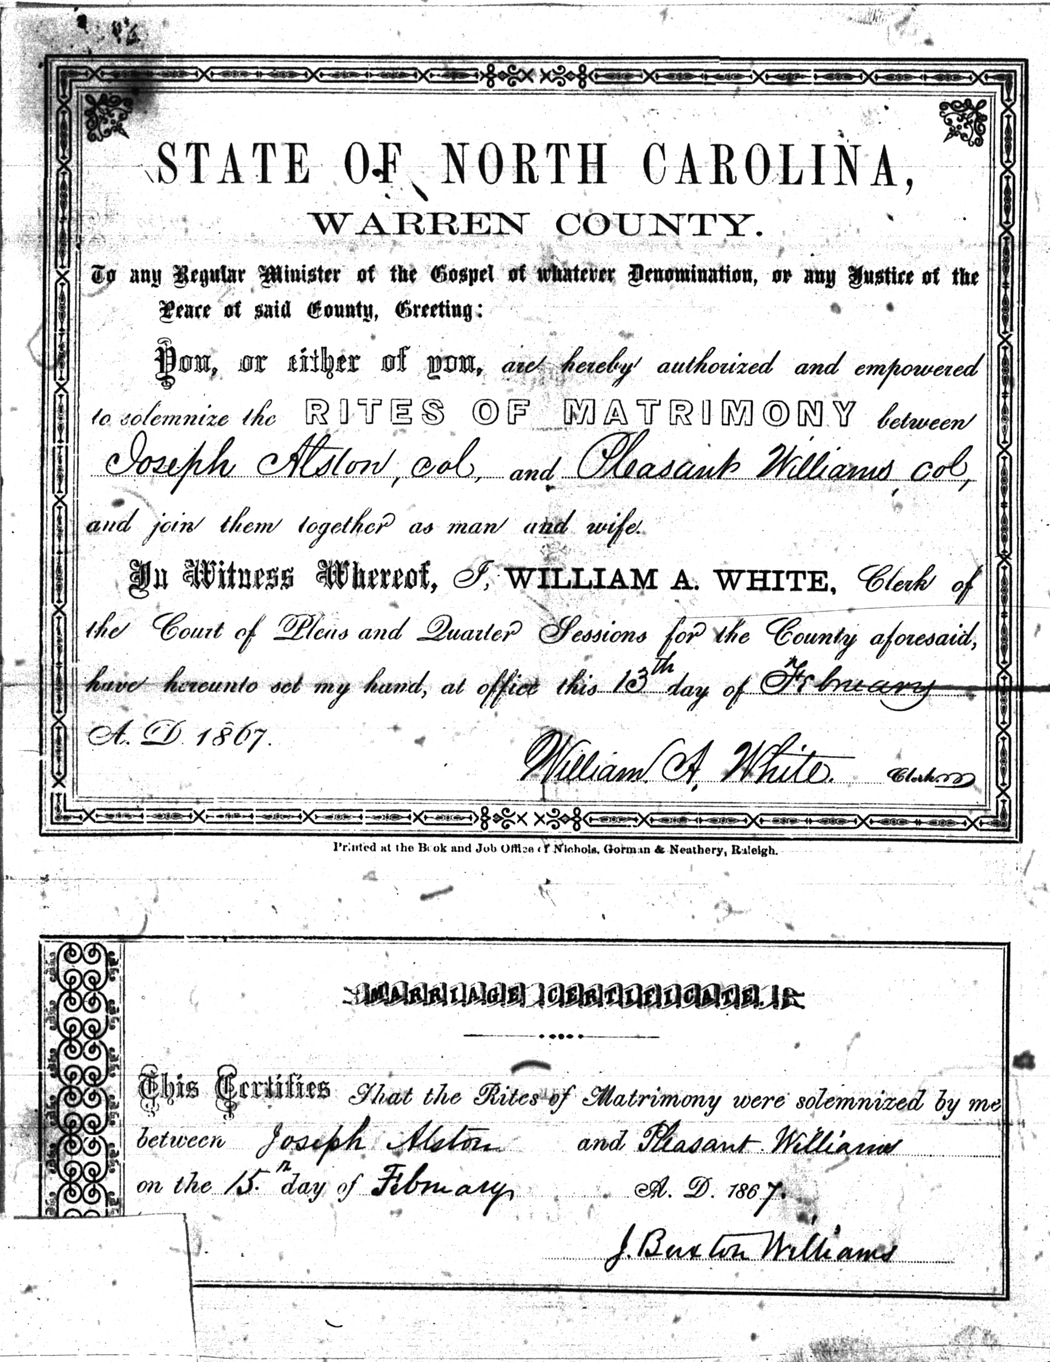 STATE OF NORTH CAROLINA,
WARREN COUNTY.
To any Regular Minister of the Gospel of whatever Denomination, or any Justice of the
Peace of said County, Greeting:
You, or either of you, are hereby authorized and empowered
to solemnize the RITES OF MATRIMONY between
Joseph Alston, col, and Pleasant Williams, col,
and join them together as man and wife.
In Witness Whereof, I, WILLIAM A. WHITE, Clerk of
the Court of Pleas and Quarter Sessions for the County aforesaid,
have hereunto set my hand, at office this 13th day of February
A. D. 1867.
William A. White. Clerk
Printed at the Book and Job Office of Nichols, Gorman & Neathery, Raleigh.
MARRIAGE CERTIFICATE.
This Certifies That the Rites of Matrimony were solemnized by me
between Joseph Alston and Pleasant Williams
on the 15. day of February A. D. 1867.
J. Buxton Williams